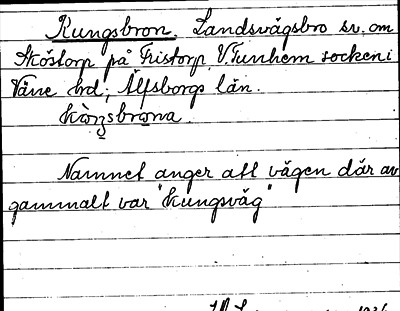 Kungsbron. Landsvägsbro sv. om
Sköttorp på Fristorp V. Tunhem socken i
Väne hd; Älfsborgs län.
Namnet anger att vägen där av
gammalt var "kungsväg"